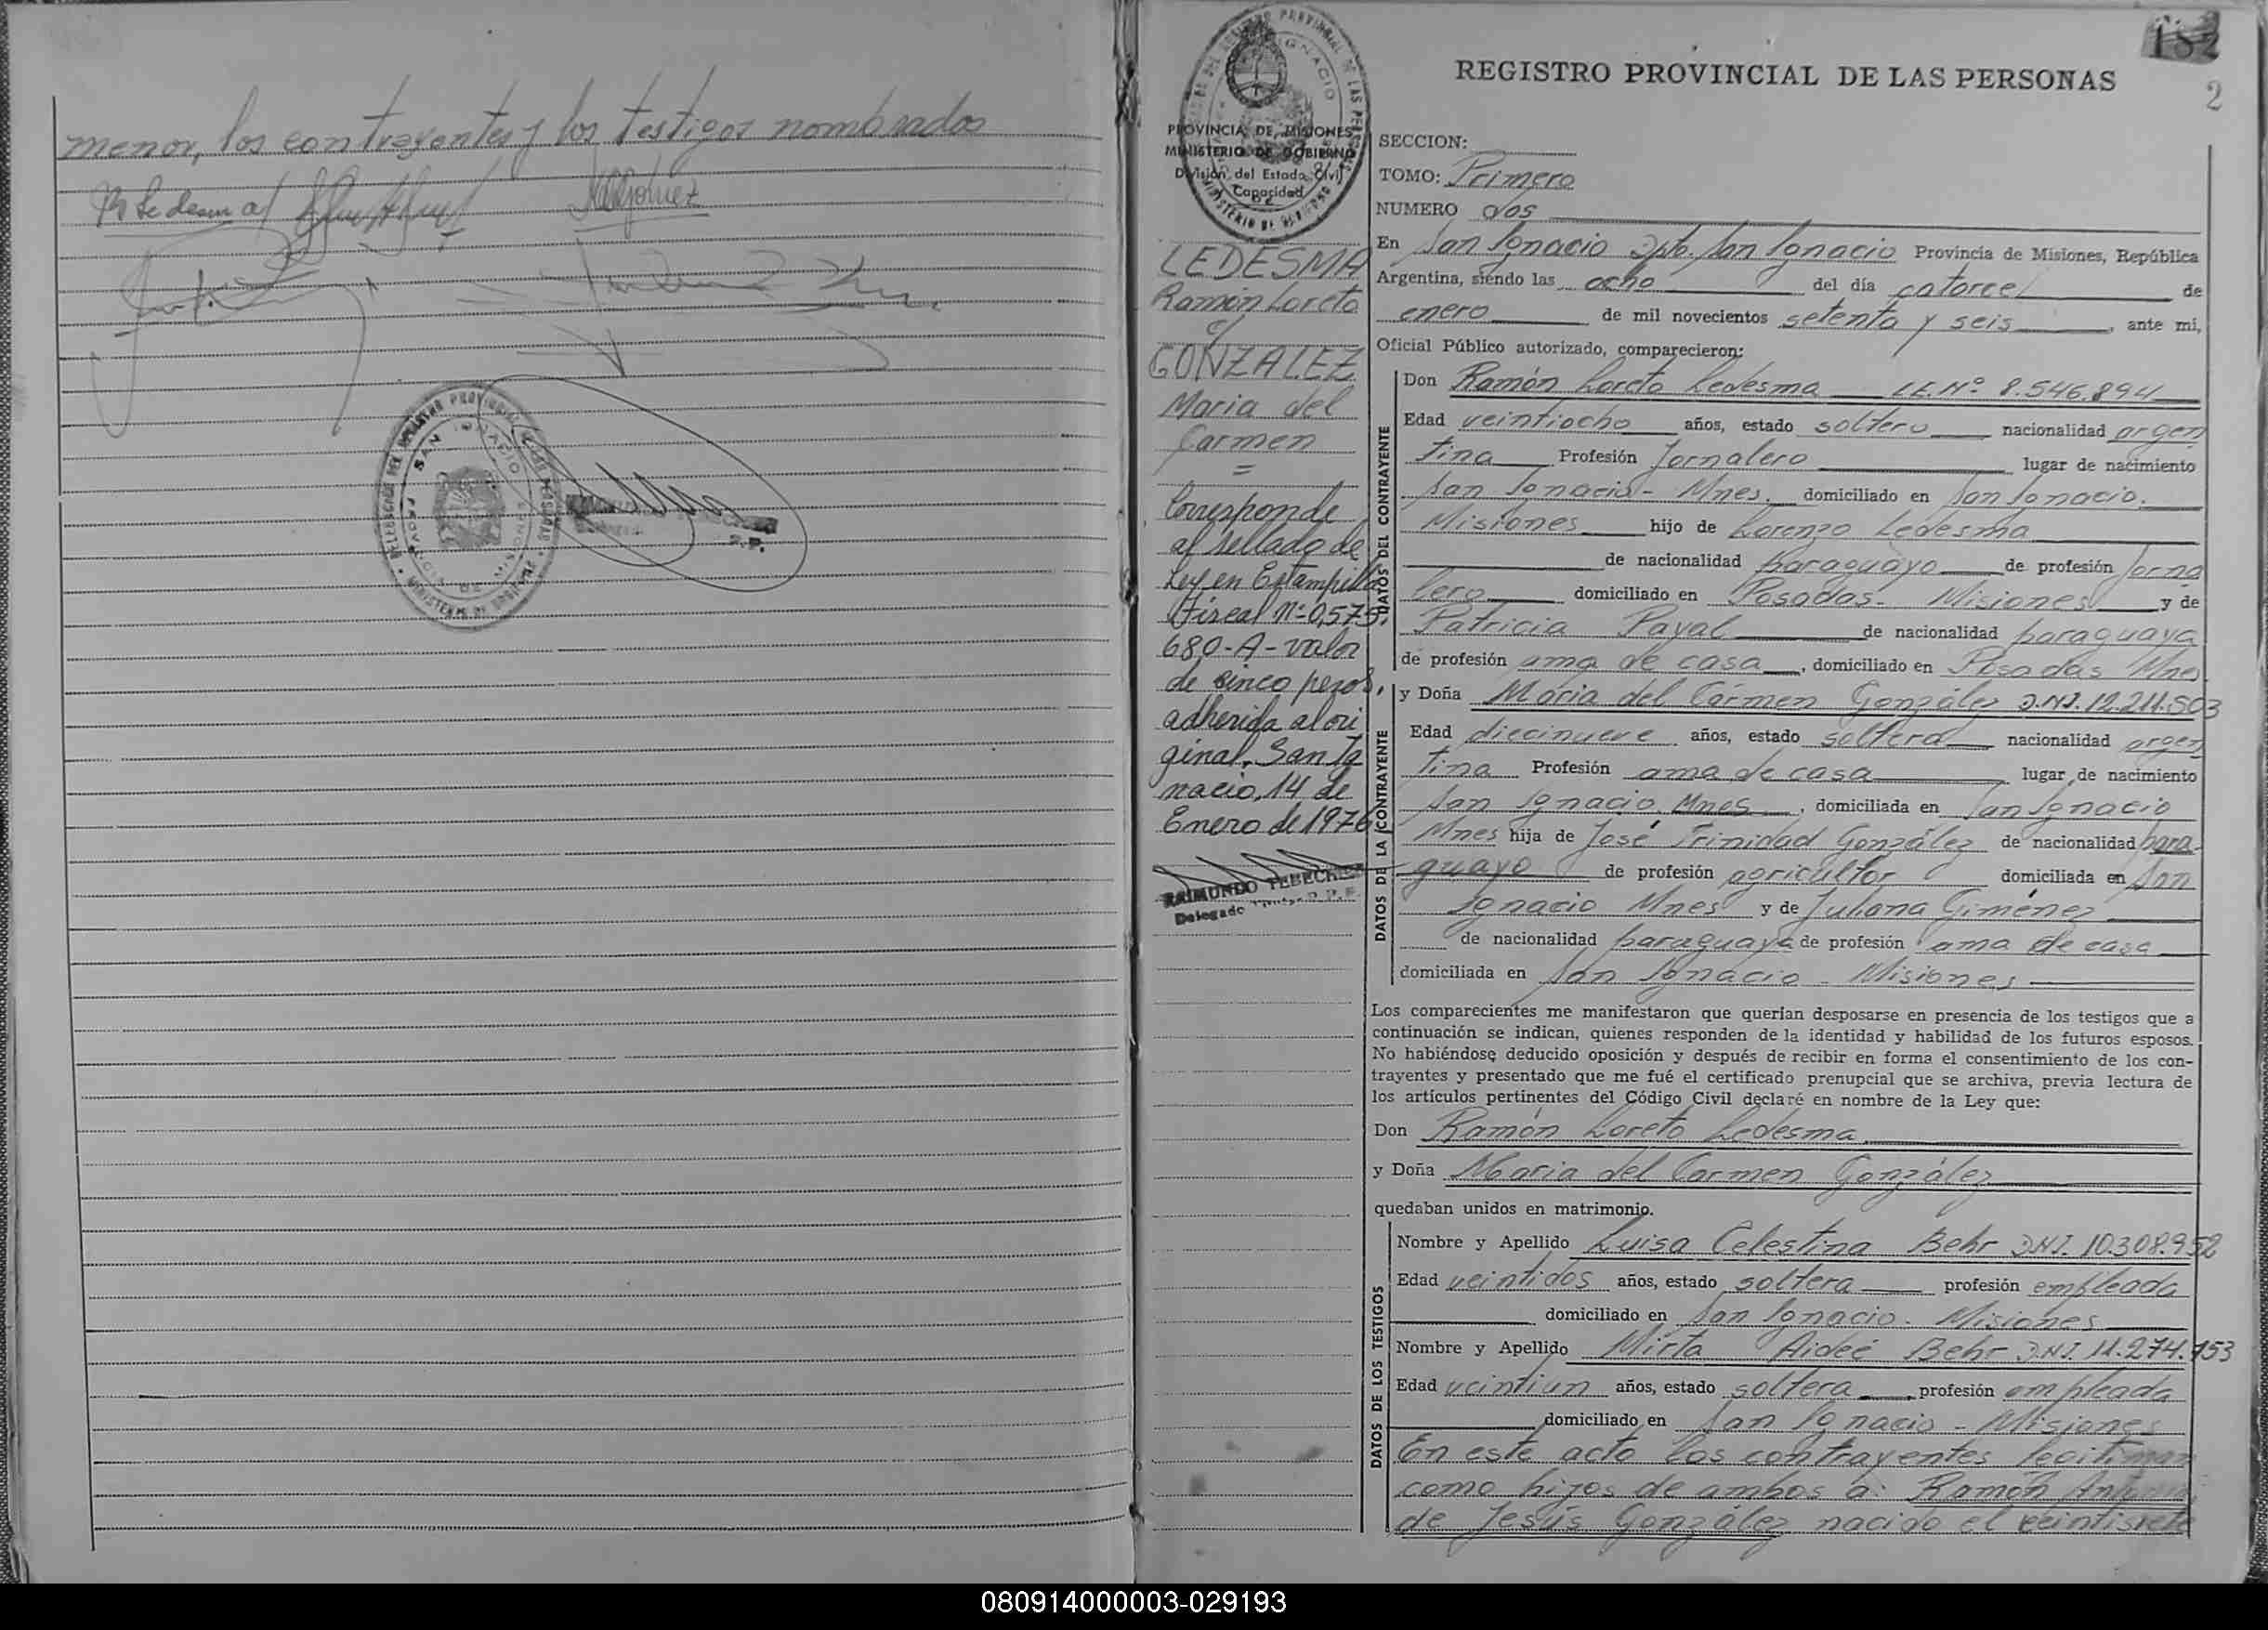 menor, los contrayentes y los testigos nombrados
R Ledesma
REGISTRO PROVINCIAL DE LAS PERSONAS
182
2
PROVINCIA DE MISIONES
MINISTERIO DE GOBIERNO
División del Estado Civil
y Capacidad
LEDESMA
Ramón Loreto
c/
GONZALEZ
Maria del
Carmen
=
Corresponde
al sellado de
Ley en Estampilla
Fiscal Nº 0,575.
680-A- valor
de cinco pesos,
adherida al ori
ginal. San Ig
nacio, 14 de
Enero de 1976
RAIMUNDO
Delegado
SECCION:
TOMO: Primero
NUMERO dos
En San Ignacio Dpto. San Ignacio Provincia de Misiones, República
Argentina, siendo las ocho del día catorce de
enero de mil novecientos setenta y seis, ante mi,
Oficial Público autorizado, comparecieron:
DATOS DEL CONTRAYENTE
Don Ramón Loreto Ledesma L.E. Nº 8.546.894
Edad veintiocho años, estado soltero nacionalidad argen
tina Profesión Jornalero lugar de nacimiento
San Ignacio - Mnes. domiciliado en San Ignacio.
Misiones hijo de Lorenzo Ledesma
de nacionalidad paraguayo de profesión Jorna
lero domiciliado en Posadas - Misiones y de
Patricia Payal de nacionalidad paraguaya
de profesión ama de casa, domiciliado en Posadas Mnes
DATOS DE LA CONTRAYENTE
y Doña María del Cármen González D.N.I. 12.211.503
Edad diecinueve años, estado soltera nacionalidad argen
tina Profesión ama de casa lugar de nacimiento
San Ignacio. Mnes, domiciliada en San Ignacio
Mnes hija de José Trinidad González de nacionalidad para
guayo de profesión agricultor domiciliada en San
Ignacio Mnes y de Juliana Giménez
de nacionalidad paraguaya de profesión ama de casa
domiciliada en San Ignacio - Misiones
Los comparecientes me manifestaron que querían desposarse en presencia de los testigos que a
continuación se indican, quienes responden de la identidad y habilidad de los futuros esposos.
No habiéndose deducido oposición y después de recibir en forma el consentimiento de los con-
trayentes y presentado que me fué el certificado prenupcial que se archiva, previa lectura de
los artículos pertinentes del Código Civil declaré en nombre de la Ley que:
Don Ramón Loreto Ledesma
y Doña María del Carmen González
quedaban unidos en matrimonio.
DATOS DE LOS TESTIGOS
Nombre y Apellido Luisa Celestina Behr D.N.I. 10.308.952
Edad veintidos años, estado soltera profesión empleada
domiciliado en San Ignacio. Misiones
Nombre y Apellido Mirta Aideé Behr D.N.I. 11.274.153
Edad veintiun años, estado soltera, profesión empleada
domiciliado en San Ignacio - Misiones
En este acto los contrayentes legitiman
como hijos de ambos a: Ramón Antonio
de Jesús González nacido el veintisiete
080914000003-029193